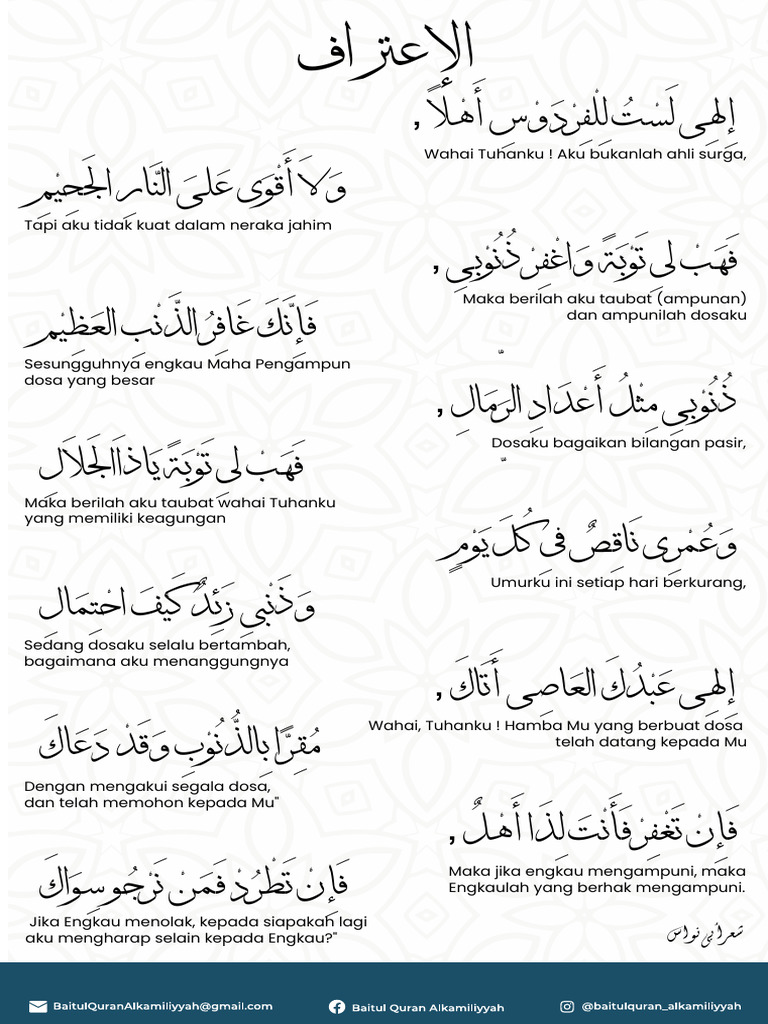 الإعتراف
إلهِى لَسْتُ لِلْفِرْدَوْسِ أَهْلاً ,
Wahai Tuhanku ! Aku bukanlah ahli surga,
وَلاَ أَقْوَى عَلىَ النَّارِ الجَحِيْمِ
Tapi aku tidak kuat dalam neraka jahim
فَهَبْ لِى تَوْبَةً وَاغْفِرْ ذُنُوْبِي ,
Maka berilah aku taubat (ampunan)
dan ampunilah dosaku
فَإِنَّكَ غَافِرُ الذَّنْبِ العَظِيْمِ
Sesungguhnya engkau Maha Pengampun
dosa yang besar
ذُنُوْبِي مِثْلُ أَعْدَادِ الرَمَالِ ,
Dosaku bagaikan bilangan pasir,
فَهَبْ لِى تَوْبَةً يَاذَاالجَلاَلِ
Maka berilah aku taubat wahai Tuhanku
yang memiliki keagungan
وَعُمْرِى نَاقِصٌ فِى كُلَ يَوْمٍ
Umurku ini setiap hari berkurang,
وَذَنْبِى زَئِدٌ كَيْفَ احْتِمَالِ
Sedang dosaku selalu bertambah,
bagaimana aku menanggungnya
إلهِى عَبْدُكَ العَاصِى أَتَاكَ ,
Wahai, Tuhanku ! Hamba Mu yang berbuat dosa
telah datang kepada Mu
مُقِرًّا بِالذُّنُوْبِ وَقَدْ دَعَاكَ
Dengan mengakui segala dosa,
dan telah memohon kepada Mu"
فَإِنْ تَغْفِرْ فَأَنْتَ لِذَا أَهْلٌ ,
Maka jika engkau mengampuni, maka
Engkaulah yang berhak mengampuni.
فَإِنْ تَطْرُدْ فَمَنْ نَرْجُو سِوَاكَ
Jika Engkau menolak, kepada siapakah lagi
aku mengharap selain kepada Engkau?"
شعر أبي نواس
BaitulQuranAlkamiliyyah@gmail.com
Baitul Quran Alkamiliyyah
@baitulquran_alkamiliyyah